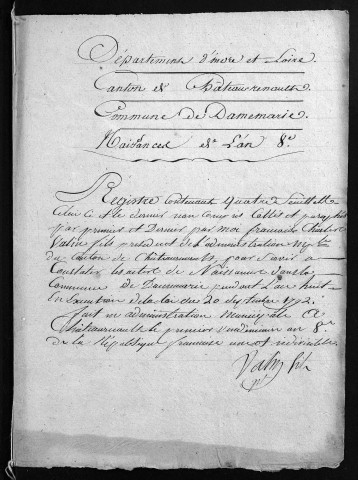 Département d'indre et Loire.
Canton de Châteaurenault.
Commune de Damemarie.
Naissances de L'an 8.e
Registre Contenant quatre feuillets
Celui ci et le dernier non compris Cottés et paraphés
par premier et Dernier par moi françois Charles
Vahin fils president de l'administration mple
du Canton de Châteaurenault, pour servir a
Constater les actes de Naissance dans la
Commune de Damemarie pendant l'an huit
en Execution de la loi du 20 septembre 1792.
fait en administration municipale a
Châteaurenault le premier vendemiaire an 8.e
de la République française une et indivisible.
Vahin fils
pt